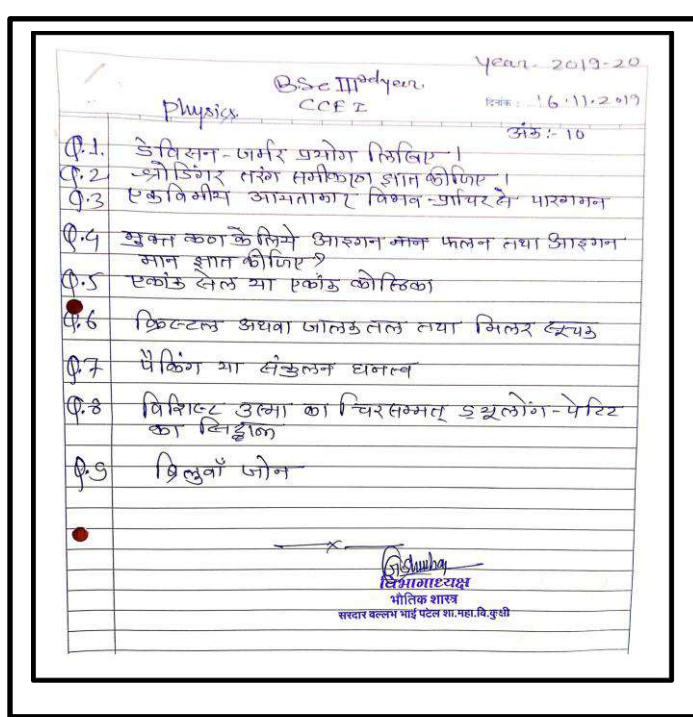 Year- 2019-20
BSc IIIrd year.
Physics. CCE I दिनांक : 16.11.2019
अंक :- 10
Q.1. डेविसन - जर्मर प्रयोग लिखिए ।
Q.2 श्रोडिंगर तरंग समीकरण ज्ञात कीजिए ।
Q.3 एकविमीय आयताकार विभव - प्राचिर से पारगमन
Q.4 मुक्त कण के लिये आइगन मान फलन तथा आइगन
मान ज्ञात कीजिए ?
Q.5 एकांक सेल या एकांक कोष्ठिका
Q.6 क्रिस्टल अथवा जालक तल तथा मिलर सूचक
Q.7 पैकिंग या संकुलन घनत्व
Q.8 विशिष्ट उष्मा का चिरसम्मत् ड्यूलोंग - पेटिट
का सिद्धान्त
Q.9 ब्रिलुवाँ जोन
x
विभागाध्यक्ष
भौतिक शास्त्र
सरदार वल्लभ भाई पटेल शा.महा.वि.कुक्षी